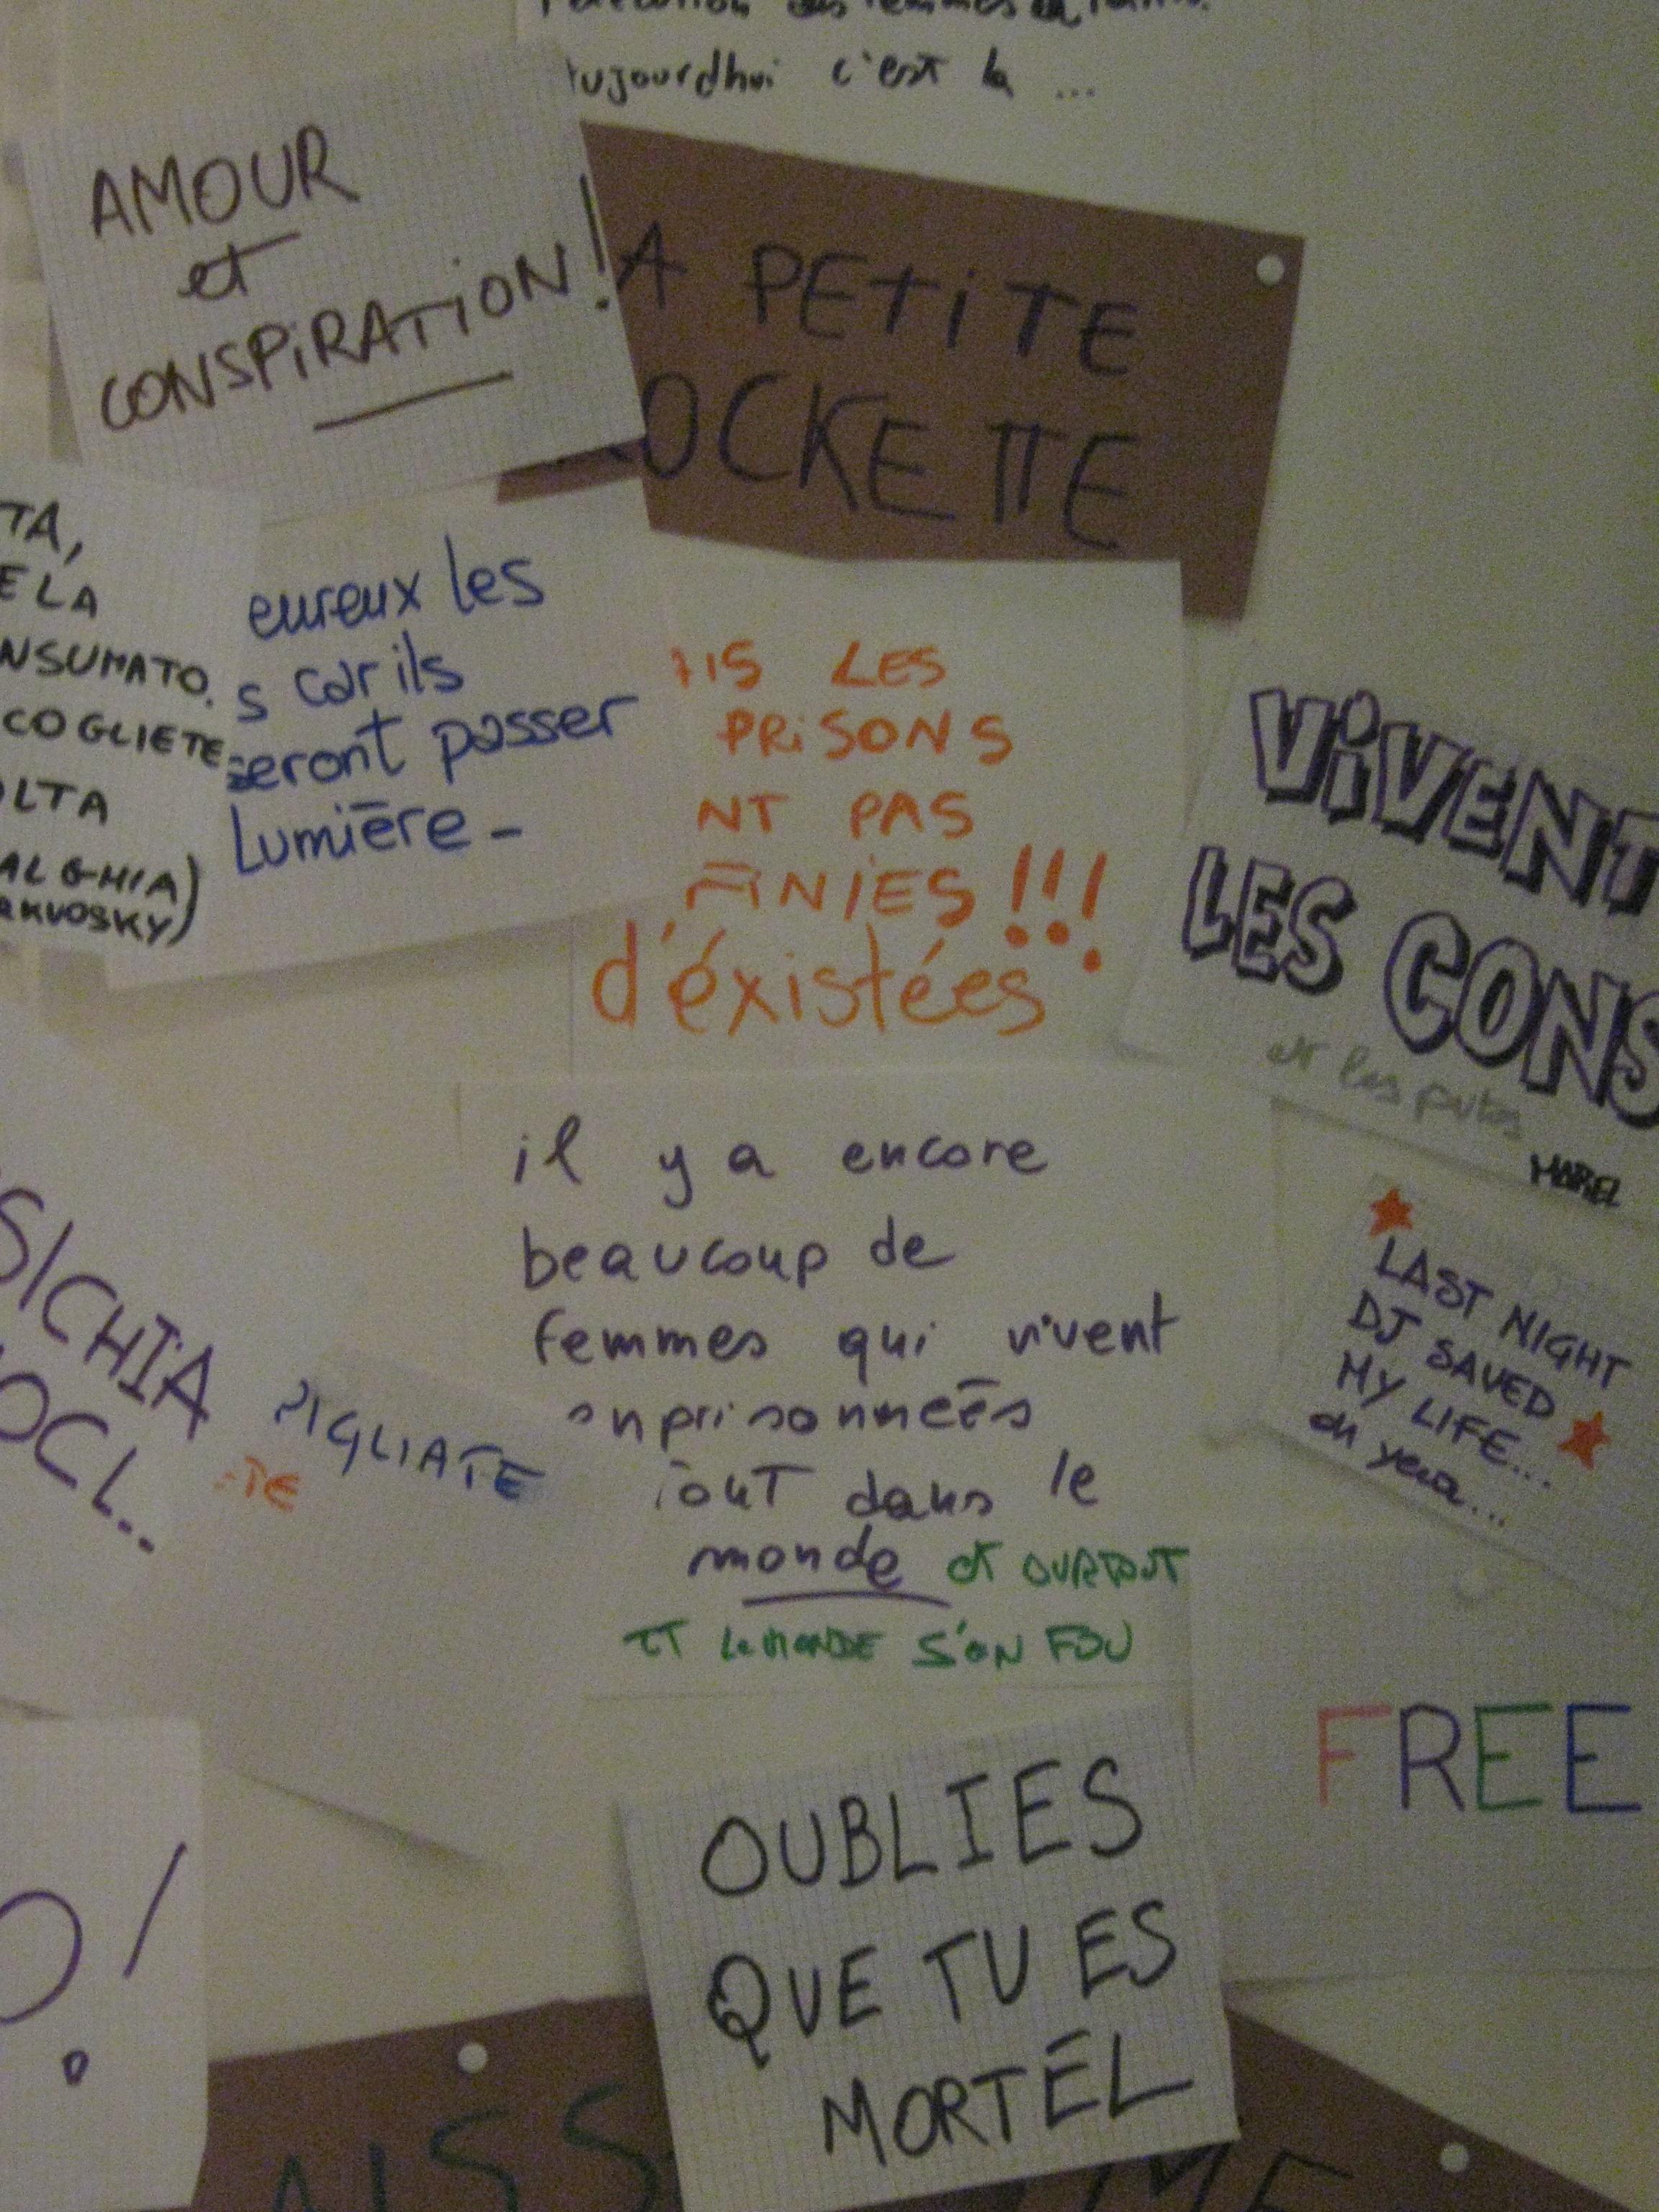 aujourdhui c'est la ...
AMOUR
et
CONSPIRATION!
A PETITE
OCKETTE
TA,
E LA
NSUMATO.
COGLIETE
OLTA
ALGHIA)
RKVOSKY)
eureux les
s car ils
seront passer
lumière -
IS LES
PRISONS
NT PAS
FINIES!!!
d'éxistées
ViVENT
LES CONS
et les putes
MARIEL
il y a encore
beaucoup de
femmes qui vivent
enprisonnées
tout dans le
monde et surtout
ET LE MONDE S'ON FOU
LAST NIGHT
DJ SAVED
MY LIFE...
oh yea...
SICHIA
OCL...
PIGLIATE
-TE
FREE
OUBLIES
QUE TU ES
MORTEL
O!
AISS
ME